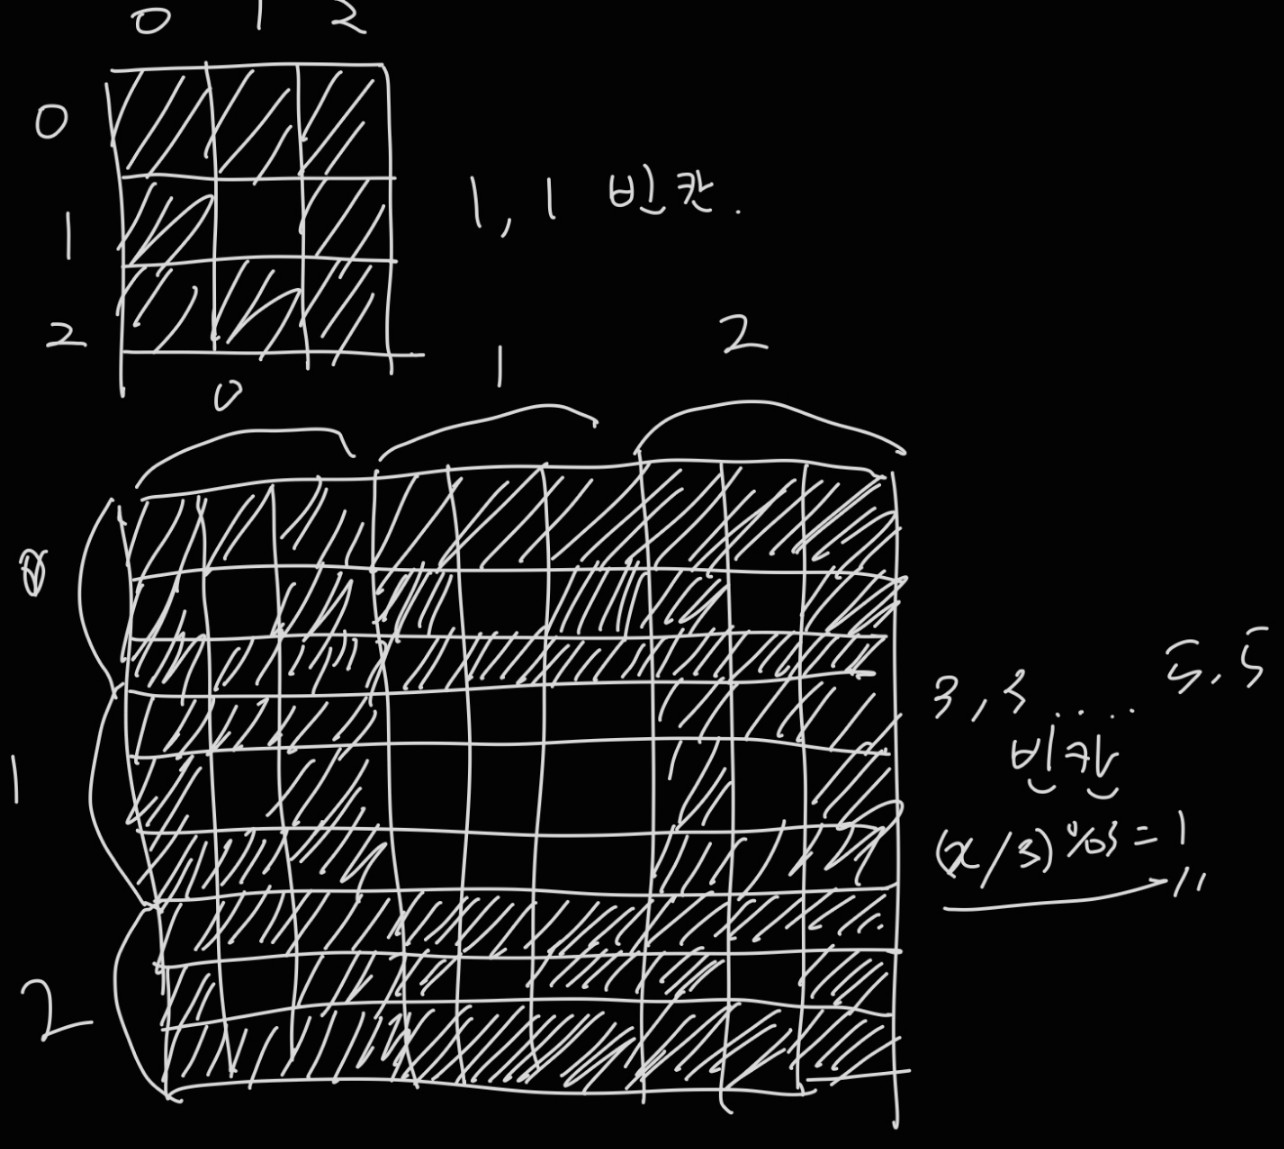 0 1 2
0
1
2
1, 1 빈칸.
0 1 2
0
1
2
3, 3 ..... 5, 5
빈칸
(x/3)%3=1